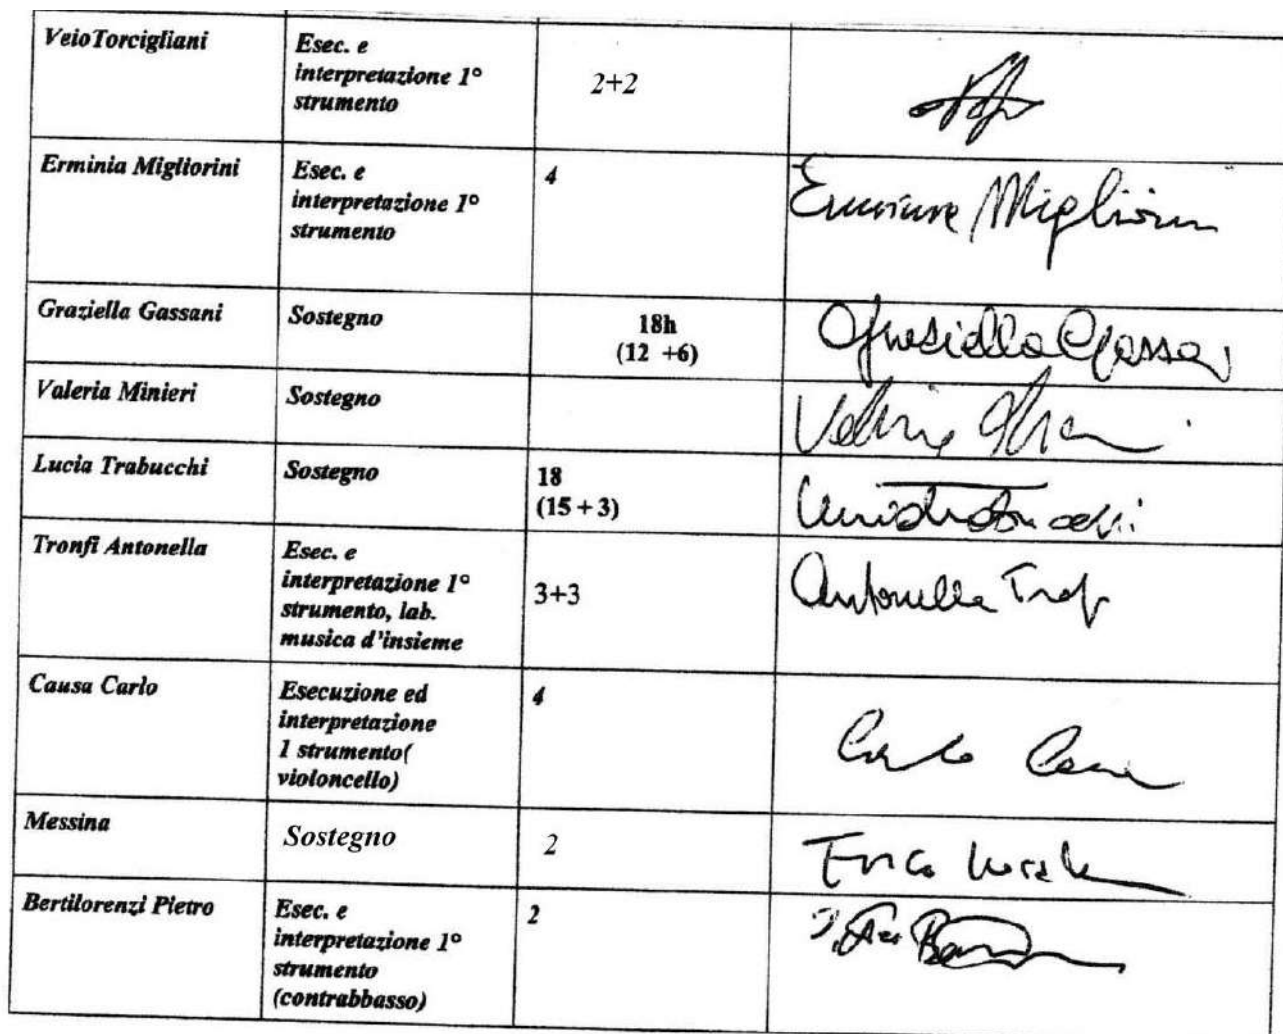 Veio Torcigliani
Esec. e
interpretazione 1°
strumento
2+2
Erminia Migliorini
Esec. e
interpretazione 1°
strumento
4
Migliorini
Graziella Gassani
Sostegno
18h
(12 +6)
Graziella Gassa
Valeria Minieri
Sostegno
Lucia Trabucchi
Sostegno
18
(15 + 3)
Tronfi Antonella
Esec. e
interpretazione 1°
strumento, lab.
musica d'insieme
3+3
Antonella
Causa Carlo
Esecuzione ed
interpretazione
1 strumento(
violoncello)
4
Carlo Causa
Messina
Sostegno
2
Bertilorenzi Pietro
Esec. e
interpretazione 1°
strumento
(contrabbasso)
2